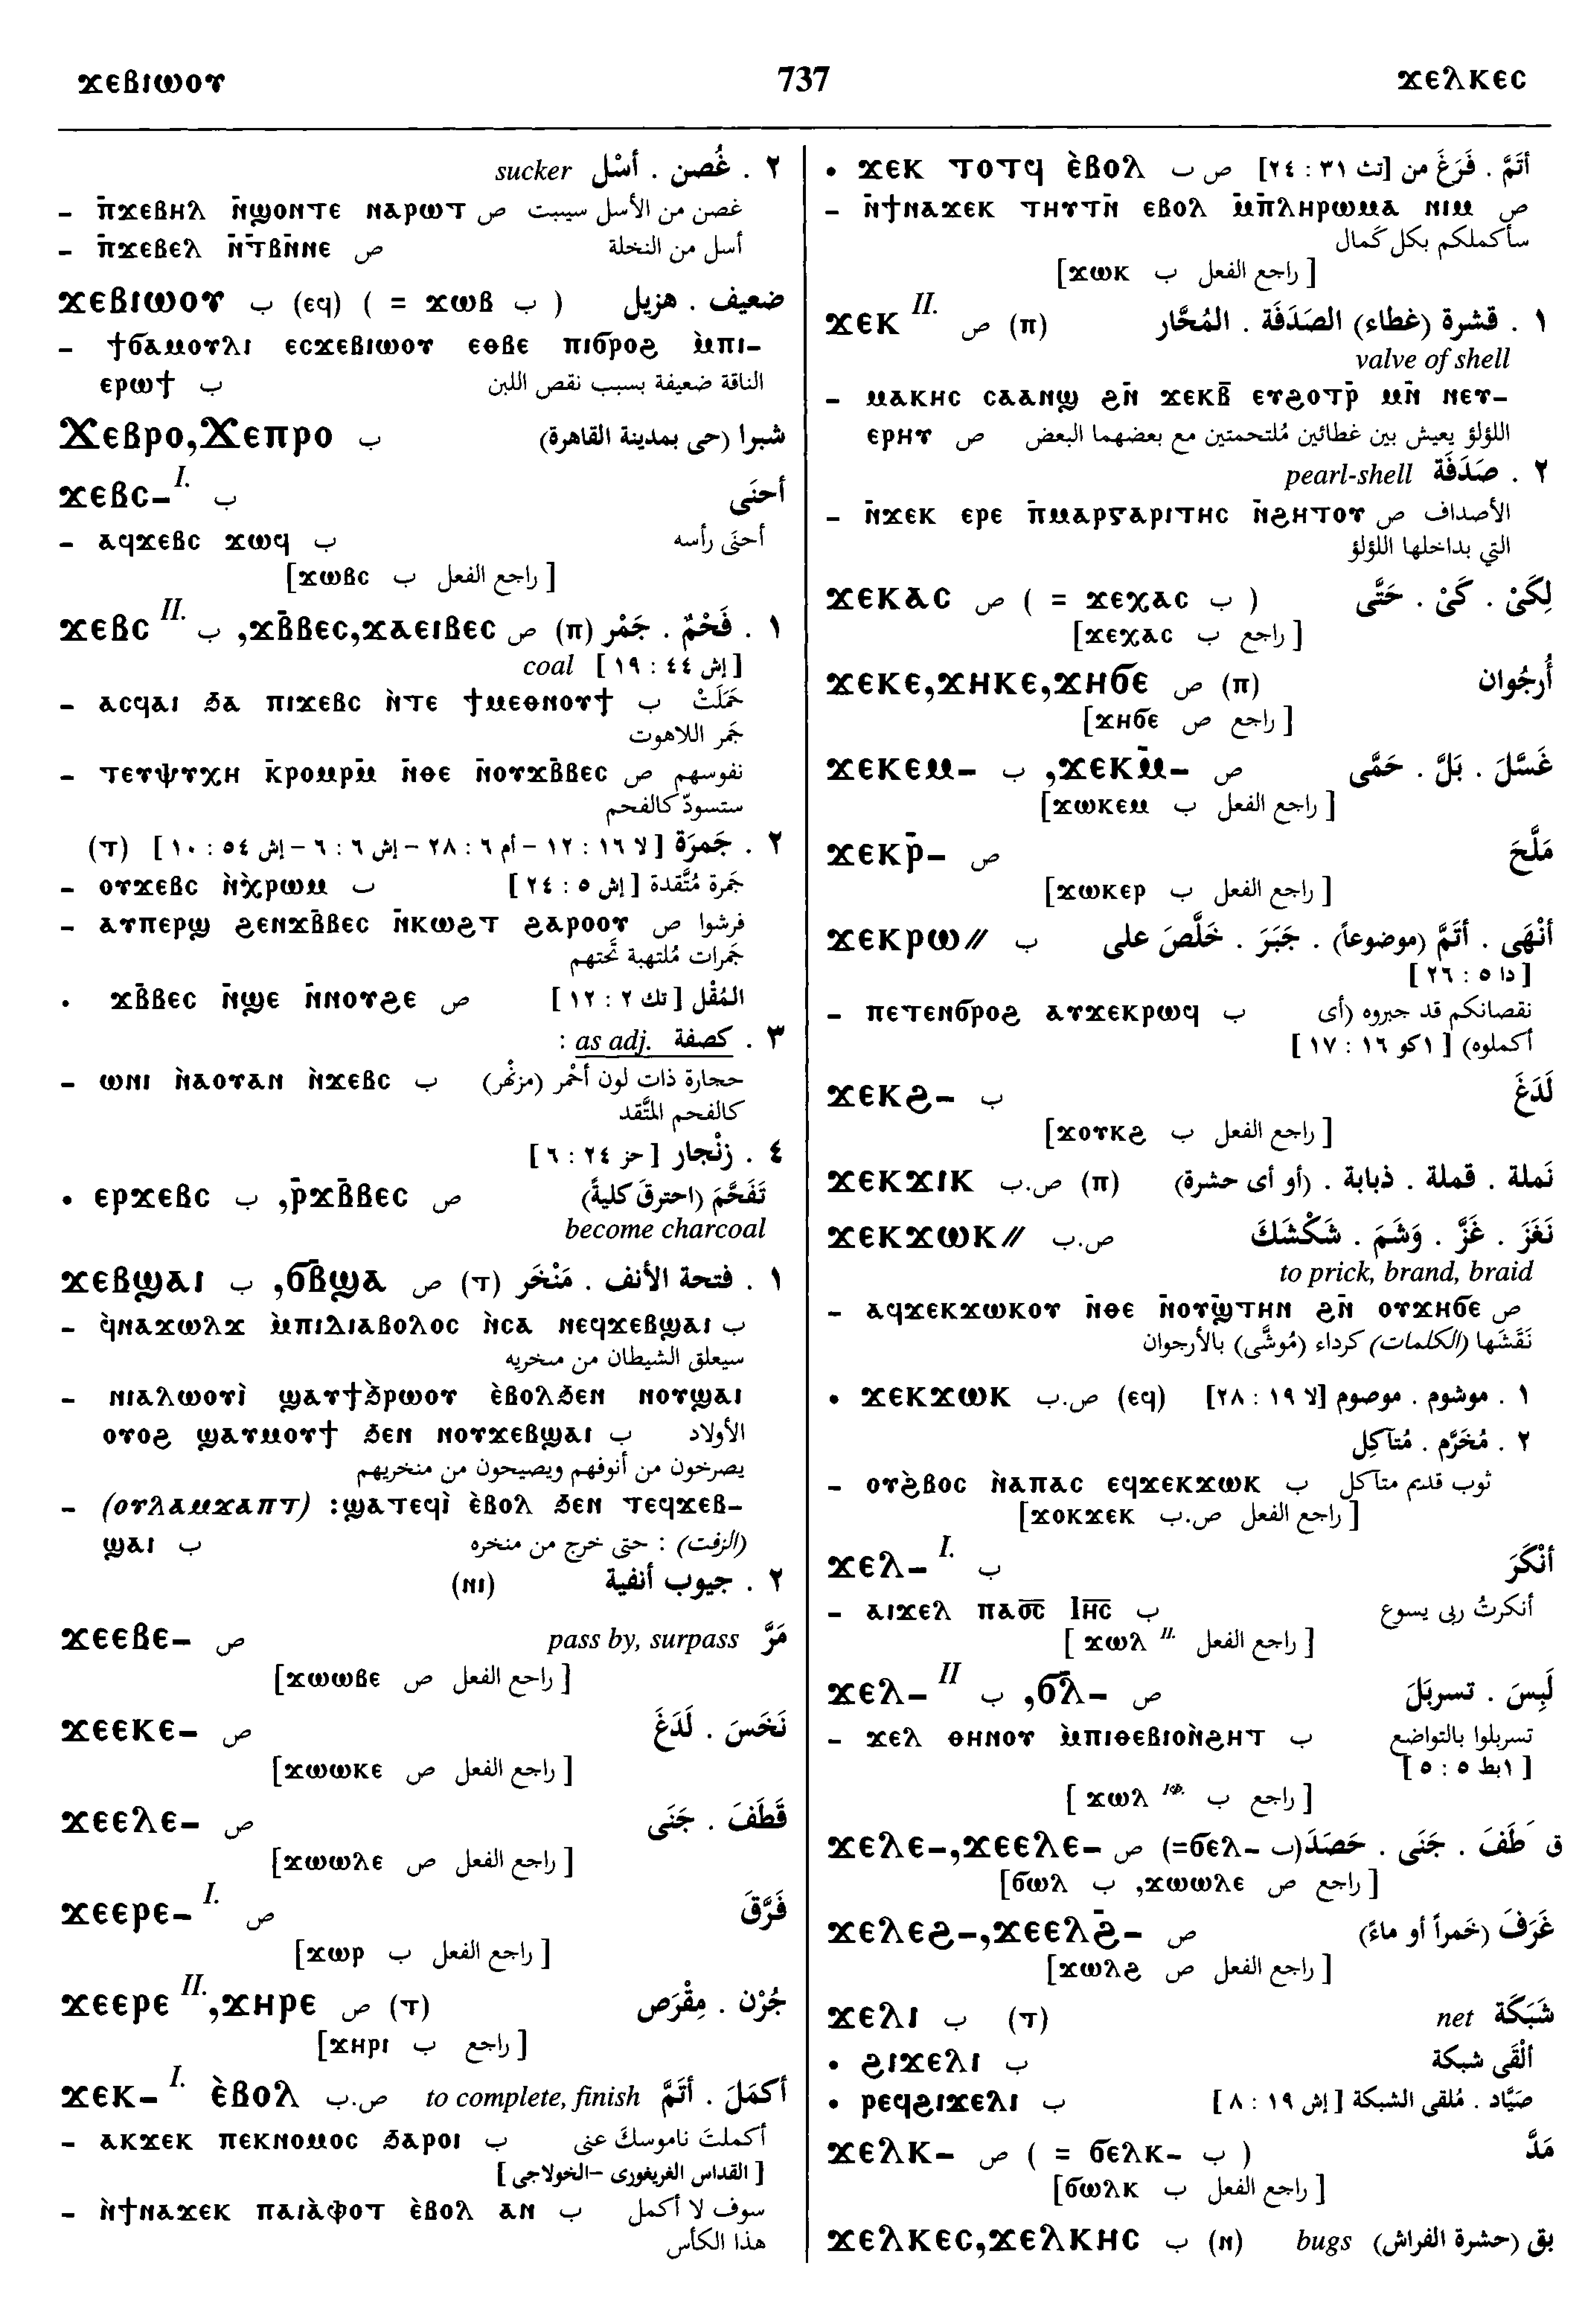 ϫⲉⲃⲓⲱⲟⲩ 737 ϫⲉⲗⲕⲉⲥ
٢ . غُصن . أسْل sucker
– ⲡ̄ϫⲉⲃⲏⲗ ⲛ̄ϣⲟⲛⲧⲉ ⲛⲁⲣⲱⲧ ص غصن من الأسل سيبت
– ⲡ̄ϫⲉⲃⲉⲗ ⲛ̄ⲧⲃ̄ⲛ̄ⲛⲉ ص أسل من النخلة
ϫⲉⲃⲓⲱⲟⲩ ب (ⲉϥ) ( = ϫⲱⲃ ب ) ضعيف . هزيل
– ϯϭⲁⲙⲟⲩⲗⲓ ⲉⲥϫⲉⲃⲓⲱⲟⲩ ⲉⲑⲃⲉ ⲡⲓϭⲣⲟϩ ⲙ̀ⲡⲓ–
ⲉⲣⲱϯ ب الناقة ضعيفة بسبب نقص اللبن
Ϫⲉⲃⲣⲟ,Ϫⲉⲡⲣⲟ ب شبرا (حى بمدينة القاهرة)
ϫⲉⲃⲥ– I. ب أحنَى
– ⲁϥϫⲉⲃⲥ ϫⲱϥ ب أحنَى رأسه
[ راجع الفعل ب ϫⲱⲃⲥ]
ϫⲉⲃⲥ II. ب ,ϫⲃ̄ⲃⲉⲥ,ϫⲁⲉⲓⲃⲉⲥ ص (ⲡ) ١ . فَحْمٌ . جَمْر
[إش ٤٤ : ١٩ ] coal
– ⲁⲥϥⲁⲓ ϧⲁ ⲡⲓϫⲉⲃⲥ ⲛ̀ⲧⲉ ϯⲙⲉⲑⲛⲟⲩϯ ب حَمَلَتْ
جَمر اللاهوت
– ⲧⲉⲩⲯⲩⲭⲏ ⲕ̄ⲣⲟⲙⲣⲙ̄ ⲛ̄ⲑⲉ ⲛ̄ⲟⲩϫⲃ̄ⲃⲉⲥ ص نفوسهم
ستسودّ كالفحم
٢ . جَمرَة [ لا ١٦ : ١٢ – أم ٦ : ٢٨ – إش ٦ : ٦ – إش ٥٤ : ١٠ ] (ⲧ)
– ⲟⲩϫⲉⲃⲥ ⲛ̀ⲭⲣⲱⲙ ب جَمرة مُتَّقدة [ إش ٥ : ٢٤ ]
– ⲁⲩⲡⲉⲣϣ ϩⲉⲛϫⲃ̄ⲃⲉⲥ ⲛ̄ⲕⲱϩⲧ ϩⲁⲣⲟⲟⲩ ص فرشوا
جَمرات مُلتهبة تَحتهم
• ϫⲃ̄ⲃⲉⲥ ⲛ̄ϣⲉ ⲛ̄ⲛⲟⲩϩⲉ ص المُقْل [ تك ٢ : ١٢ ]
٣ . كصفة as adj. :
– ⲱⲛⲓ ⲛ̀ⲁⲟⲩⲁⲛ ⲛ̀ϫⲉⲃⲥ ب حجارة ذات لون أحْمر (مزنْهر)
كالفحم المتَّقد
٤ . زنْجار [ حز ٢٤ : ٦ ]
• ⲉⲣϫⲉⲃⲥ ب ,ⲣ̄ϫⲃ̄ⲃⲉⲥ ص تَفَحَّمَ (احترقَ كليةً)
become charcoal
ϫⲉⲃϣⲁⲓ ب ,ϭⲃ̄ϣⲁ ص (ⲧ) ١ . فتحة الأنف . مَنْخَر
– ϥ̀ⲛⲁϫⲱⲗϫ ⲙ̀ⲡⲓⲇⲓⲁⲃⲟⲗⲟⲥ ⲛ̀ⲥⲁ ⲛⲉϥϫⲉⲃϣⲁⲓ ب
سيعلق الشيطان من منخريه
– ⲛⲓⲁⲗⲱⲟⲩⲓ̀ ϣⲁⲩϯϧ̀ⲣⲱⲟⲩ ⲉ̀ⲃⲟⲗϧⲉⲛ ⲛⲟⲩϣⲁⲓ
ⲟⲩⲟϩ ϣⲁⲩⲙⲟⲩϯ ϧⲉⲛ ⲛⲟⲩϫⲉⲃϣⲁⲓ ب الأولاد
يصرخون من أنوفهم ويصيحون من منخريهم
– (ⲟⲩⲗⲁⲙϫⲁⲡⲧ) :ϣⲁⲧⲉϥⲓ̀ ⲉ̀ⲃⲟⲗ ϧⲉⲛ ⲧⲉϥϫⲉⲃ–
ϣⲁⲓ ب (الزفت) : حتى خرج من منخره
٢ . جيوب أنفية (ⲛⲓ)
ϫⲉⲉⲃⲉ– ص مَرَّ pass by, surpass
[ راجع الفعل ص ϫⲱⲱⲃⲉ]
ϫⲉⲉⲕⲉ– ص نَخَسَ . لَدَغَ
[ راجع الفعل ص ϫⲱⲱⲕⲉ]
ϫⲉⲉⲗⲉ– ص قَطَفَ . جَنَى
[ راجع الفعل ص ϫⲱⲱⲗⲉ]
ϫⲉⲉⲣⲉ– I. ص فَرَّقَ
[ راجع الفعل ب ϫⲱⲣ]
ϫⲉⲉⲣⲉ II.,ϫⲏⲣⲉ ص (ⲧ) جُرْن . مِقْرَص
[ راجع ب ϫⲏⲣⲓ]
ϫⲉⲕ– I. ⲉ̀ⲃⲟⲗ ص.ب أكمَلَ . أتَمَّ to complete, finish
– ⲁⲕϫⲉⲕ ⲡⲉⲕⲛⲟⲙⲟⲥ ϧⲁⲣⲟⲓ ب أكملتَ ناموسكَ عنى
[ القداس الغريغورى –الخولاجى ]
– ⲛ̀ϯⲛⲁϫⲉⲕ ⲡⲁⲓⲁ̀ⲫⲟⲧ ⲉ̀ⲃⲟⲗ ⲁⲛ ب سوف لا أكمل
هذا الكأس
• ϫⲉⲕ ⲧⲟⲧϥ ⲉ̀ⲃⲟⲗ ص ب أتَمَّ . فَرَغَ من [تث ٣١ : ٢٤]
– ⲛ̄ϯⲛⲁϫⲉⲕ ⲧⲏⲩⲧⲛ̄ ⲉⲃⲟⲗ ⲙ̄ⲡ̄ⲗⲏⲣⲱⲙⲁ ⲛⲓⲙ ص
سأكملكم بكل كَمال
[ راجع الفعل ب ϫⲱⲕ]
ϫⲉⲕ II. ص (ⲡ) ١ . قشرة (غطاء) الصَدَفَة . المُحَّار
valve of shell
– ⲙⲁⲕⲏⲥ ⲥⲁⲁⲛϣ ϩⲛ̄ ϫⲉⲕⲃ̄ ⲉⲩϩⲟⲧⲣ̄ ⲙⲛ̄ ⲛⲉⲩ–
ⲉⲣⲏⲩ ص اللؤلؤ يعيش بين غطائين مُلتحمتين مع بعضهما البعض
٢ . صَدَفَة pearl-shell
– ⲛ̄ϫⲉⲕ ⲉⲣⲉ ⲡ̄ⲙⲁⲣⲅⲁⲣⲓⲧⲏⲥ ⲛ̄ϩⲏⲧⲟⲩ ص الأصداف
التي بداخلها اللؤلؤ
ϫⲉⲕⲁⲥ ص ( = ϫⲉⲭⲁⲥ ب ) لِكَىْ . كَىْ . حَتَّى
[ راجع ب ϫⲉⲭⲁⲥ]
ϫⲉⲕⲉ,ϫⲏⲕⲉ,ϫⲏϭⲉ ص (ⲡ) أُرجُوان
[ راجع ص ϫⲏϭⲉ]
ϫⲉⲕⲉⲙ– ب ,ϫⲉⲕⲙ̄– ص غَسَّلَ . بَلَّ . حَمَّى
[ راجع الفعل ب ϫⲱⲕⲉⲙ]
ϫⲉⲕⲣ̄– ص مَلَّحَ
[ راجع الفعل ب ϫⲱⲕⲉⲣ]
ϫⲉⲕⲣⲱ// ب أنْهَى . أتَمَّ (موضوعاً) . جَبَرَ . خَلَّصَ على
[ دا ٥ : ٢٦ ]
– ⲡⲉⲧⲉⲛϭⲣⲟϩ ⲁⲩϫⲉⲕⲣⲱϥ ب نقصانكم قد جبروه (أى
أكملوه) [ ١كو ١٦ : ١٧ ]
ϫⲉⲕϩ– ب لَدَغَ
[ راجع الفعل ب ϫⲟⲩⲕϩ]
ϫⲉⲕϫⲓⲕ ص.ب (ⲡ) نَملة . قملة . ذبابة . (أو أى حشرة)
ϫⲉⲕϫⲱⲕ// ص.ب نَغَزَ . غَزَّ . وَشَمَ . شَكْشَكَ
to prick, brand, braid
– ⲁϥϫⲉⲕϫⲱⲕⲟⲩ ⲛ̄ⲑⲉ ⲛ̄ⲟⲩϣ̄ⲧⲏⲛ ϩⲛ̄ ⲟⲩϫⲏϭⲉ ص
نَقَشَها (الكلمات) كرداء (مُوشَّى) بالأرجوان
• ϫⲉⲕϫⲱⲕ ص.ب (ⲉϥ) ١ . موشوم . موصوم [لا ١٩ : ٢٨]
٢ . مُخَرَّم . مُتآكِل
– ⲟⲩϩ̀ⲃⲟⲥ ⲛ̀ⲁⲡⲁⲥ ⲉϥϫⲉⲕϫⲱⲕ ب ثوب قديم متآكل
[ راجع الفعل ص.ب ϫⲟⲕϫⲉⲕ]
ϫⲉⲗ– I. ب أنْكَرَ
– ⲁⲓϫⲉⲗ ⲡⲁⲟ̅ⲥ̅ ⲓⲏ̅ⲥ̅ ب أنكرتُ ربى يسوع
[ راجع الفعل ϫⲱⲗ II. ]
ϫⲉⲗ– II ب ,ϭⲗ̄– ص لَبِسَ . تسربَلَ
– ϫⲉⲗ ⲑⲏⲛⲟⲩ ⲙ̀ⲡⲓⲑⲉⲃⲓⲟⲛ̀ϩⲏⲧ ب تسربلوا بالتواضع
[ ١بط ٥ : ٥ ]
[ راجع ب ϫⲱⲗ ]
ϫⲉⲗⲉ–,ϫⲉⲉⲗⲉ– ص (=ϭⲉⲗ– ب) ق َطَفَ . جَنَى . حَصَدَ
[ راجع ص ϫⲱⲱⲗⲉ, ب ϭⲱⲗ]
ϫⲉⲗⲉϩ–,ϫⲉⲉⲗϩ̄– ص غَرَفَ (خَمراً أو ماءً)
[ راجع الفعل ص ϫⲱⲗϩ]
ϫⲉⲗⲓ ب (ⲧ) شَبَكَة net
• ϩⲓϫⲉⲗⲓ ب ألْقَى شبكة
• ⲣⲉϥϩⲓϫⲉⲗⲓ ب صَيَّاد . مُلقى الشبكة [ إش ١٩ : ٨ ]
ϫⲉⲗⲕ– ص ( = ϭⲉⲗⲕ– ب ) مَدَّ
[ راجع الفعل ب ϭⲱⲗⲕ]
ϫⲉⲗⲕⲉⲥ,ϫⲉⲗⲕⲏⲥ ب (ⲛ) بق (حشرة الفراش) bugs